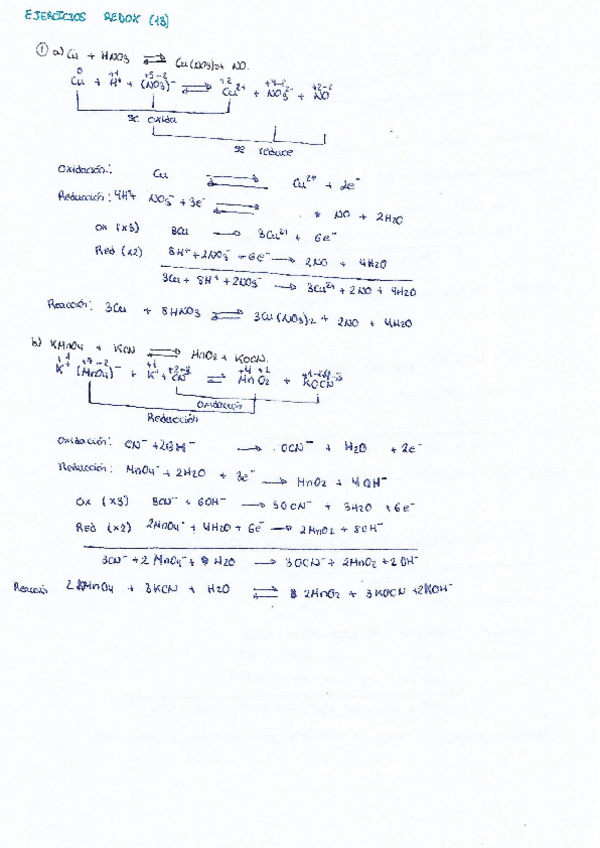 EJERCICIOS REDOX (13)
① a) Cu + HNO3 ⇌ Cu(NO3)2 + NO.
0 +1 +5 -2 +2 +4 -2 +2 -2
Cu + H+ + (NO3)- ⇌ Cu2+ + NO3- + NO
se oxida
se reduce
Oxidación: Cu ⇌ Cu2+ + 2e-
Reducción: 4H+ NO3- + 3e- ⇌ NO + 2H2O
Ox (x3) 3Cu → 3Cu2+ + 6e-
Red (x2) 8H+ + 2NO3- + 6e- → 2NO + 4H2O
3Cu + 8H+ + 2NO3- → 3Cu2+ + 2NO + 4H2O
Reacción: 3Cu + 8HNO3 ⇌ 3Cu(NO3)2 + 2NO + 4H2O
b) KMnO4 + KCN ⇌ MnO2 + KOCN.
K+ (MnO4)- + K+ CN- ⇌ MnO2 + KOCN
Oxidación
Reducción
Oxidación: CN- + 2OH- → OCN- + H2O + 2e-
Reducción: MnO4- + 2H2O + 3e- → MnO2 + 4OH-
Ox (x3) 3CN- + 6OH- → 3OCN- + 3H2O + 6e-
Red (x2) 2MnO4- + 4H2O + 6e- → 2MnO2 + 8OH-
3CN- + 2MnO4- + H2O → 3OCN- + 2MnO2 + 2OH-
Reacción 2KMnO4 + 3KCN + H2O ⇌ 2MnO2 + 3KOCN + 2KOH-